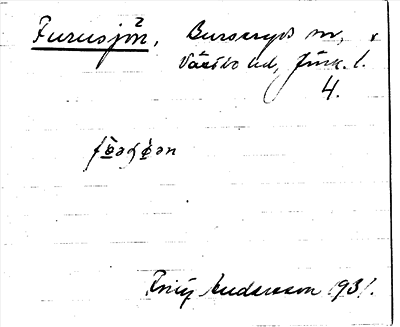 Furusjön, Burseryds sn,
Västbo hd, Jönk. l.
4.
Andersson 1931.